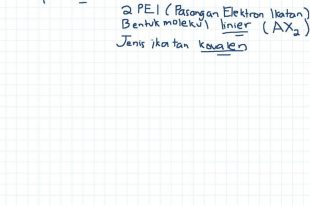 2 PEI (Pasangan Elektron Ikatan)
Bentuk molekul linier (AX₂)
Jenis ikatan kovalen